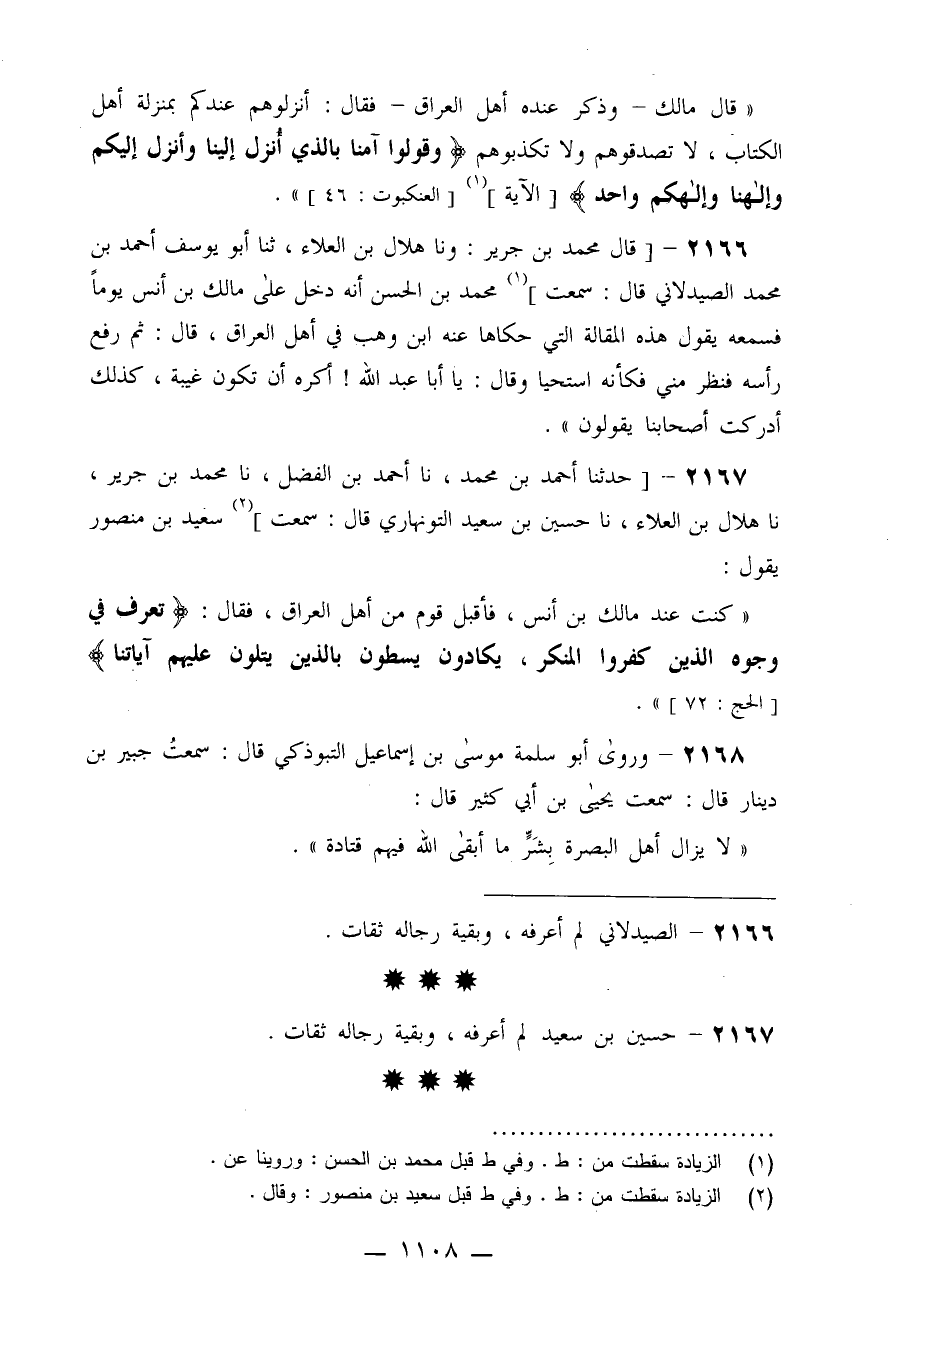 « قال مالك – وذكر عنده أهل العراق – فقال : أنزلوهم عندكم بمنزلة أهل
الكتاب ، لا تصدقوهم ولا تكذبوهم ﴿ وقولوا آمنا بالذي أُنزل إلينا وأنزل إليكم
وإلٰهنا وإلٰهكم واحد ﴾ [ الآية ](١) [ العنكبوت : ٤٦ ] » .
٢١٦٦ – [ قال محمد بن جرير : ونا هلال بن العلاء ، ثنا أبو يوسف أحمد بن
محمد الصيدلاني قال : سمعت ](١) محمد بن الحسن أنه دخل علىٰ مالك بن أنس يوماً
فسمعه يقول هذه المقالة التي حكاها عنه ابن وهب في أهل العراق ، قال : ثم رفع
رأسه فنظر مني فكأنه استحيا وقال : يا أبا عبد الله ! أكره أن تكون غيبة ، كذلك
أدركت أصحابنا يقولون » .
٢١٦٧ – [ حدثنا أحمد بن محمد ، نا أحمد بن الفضل ، نا محمد بن جرير ،
نا هلال بن العلاء ، نا حسين بن سعيد التونهاري قال : سمعت ](٢) سعيد بن منصور
يقول :
« كنت عند مالك بن أنس ، فأقبل قوم من أهل العراق ، فقال : ﴿ تعرف في
وجوه الذين كفروا المنكر ، يكادون يسطون بالذين يتلون عليهم آياتنا ﴾
[ الحج : ٧٢ ] » .
٢١٦٨ – وروىٰ أبو سلمة موسىٰ بن إسماعيل التبوذكي قال : سمعتُ جبير بن
دينار قال : سمعت يحيىٰ بن أبي كثير قال :
« لا يزال أهل البصرة بِشَرٍّ ما أبقىٰ الله فيهم قتادة » .
٢١٦٦ – الصيدلاني لم أعرفه ، وبقية رجاله ثقات .
٢١٦٧ – حسين بن سعيد لم أعرفه ، وبقية رجاله ثقات .
(١) الزيادة سقطت من : ط . وفي ط قبل محمد بن الحسن : وروينا عن .
(٢) الزيادة سقطت من : ط . وفي ط قبل سعيد بن منصور : وقال .
— ١١٠٨ —